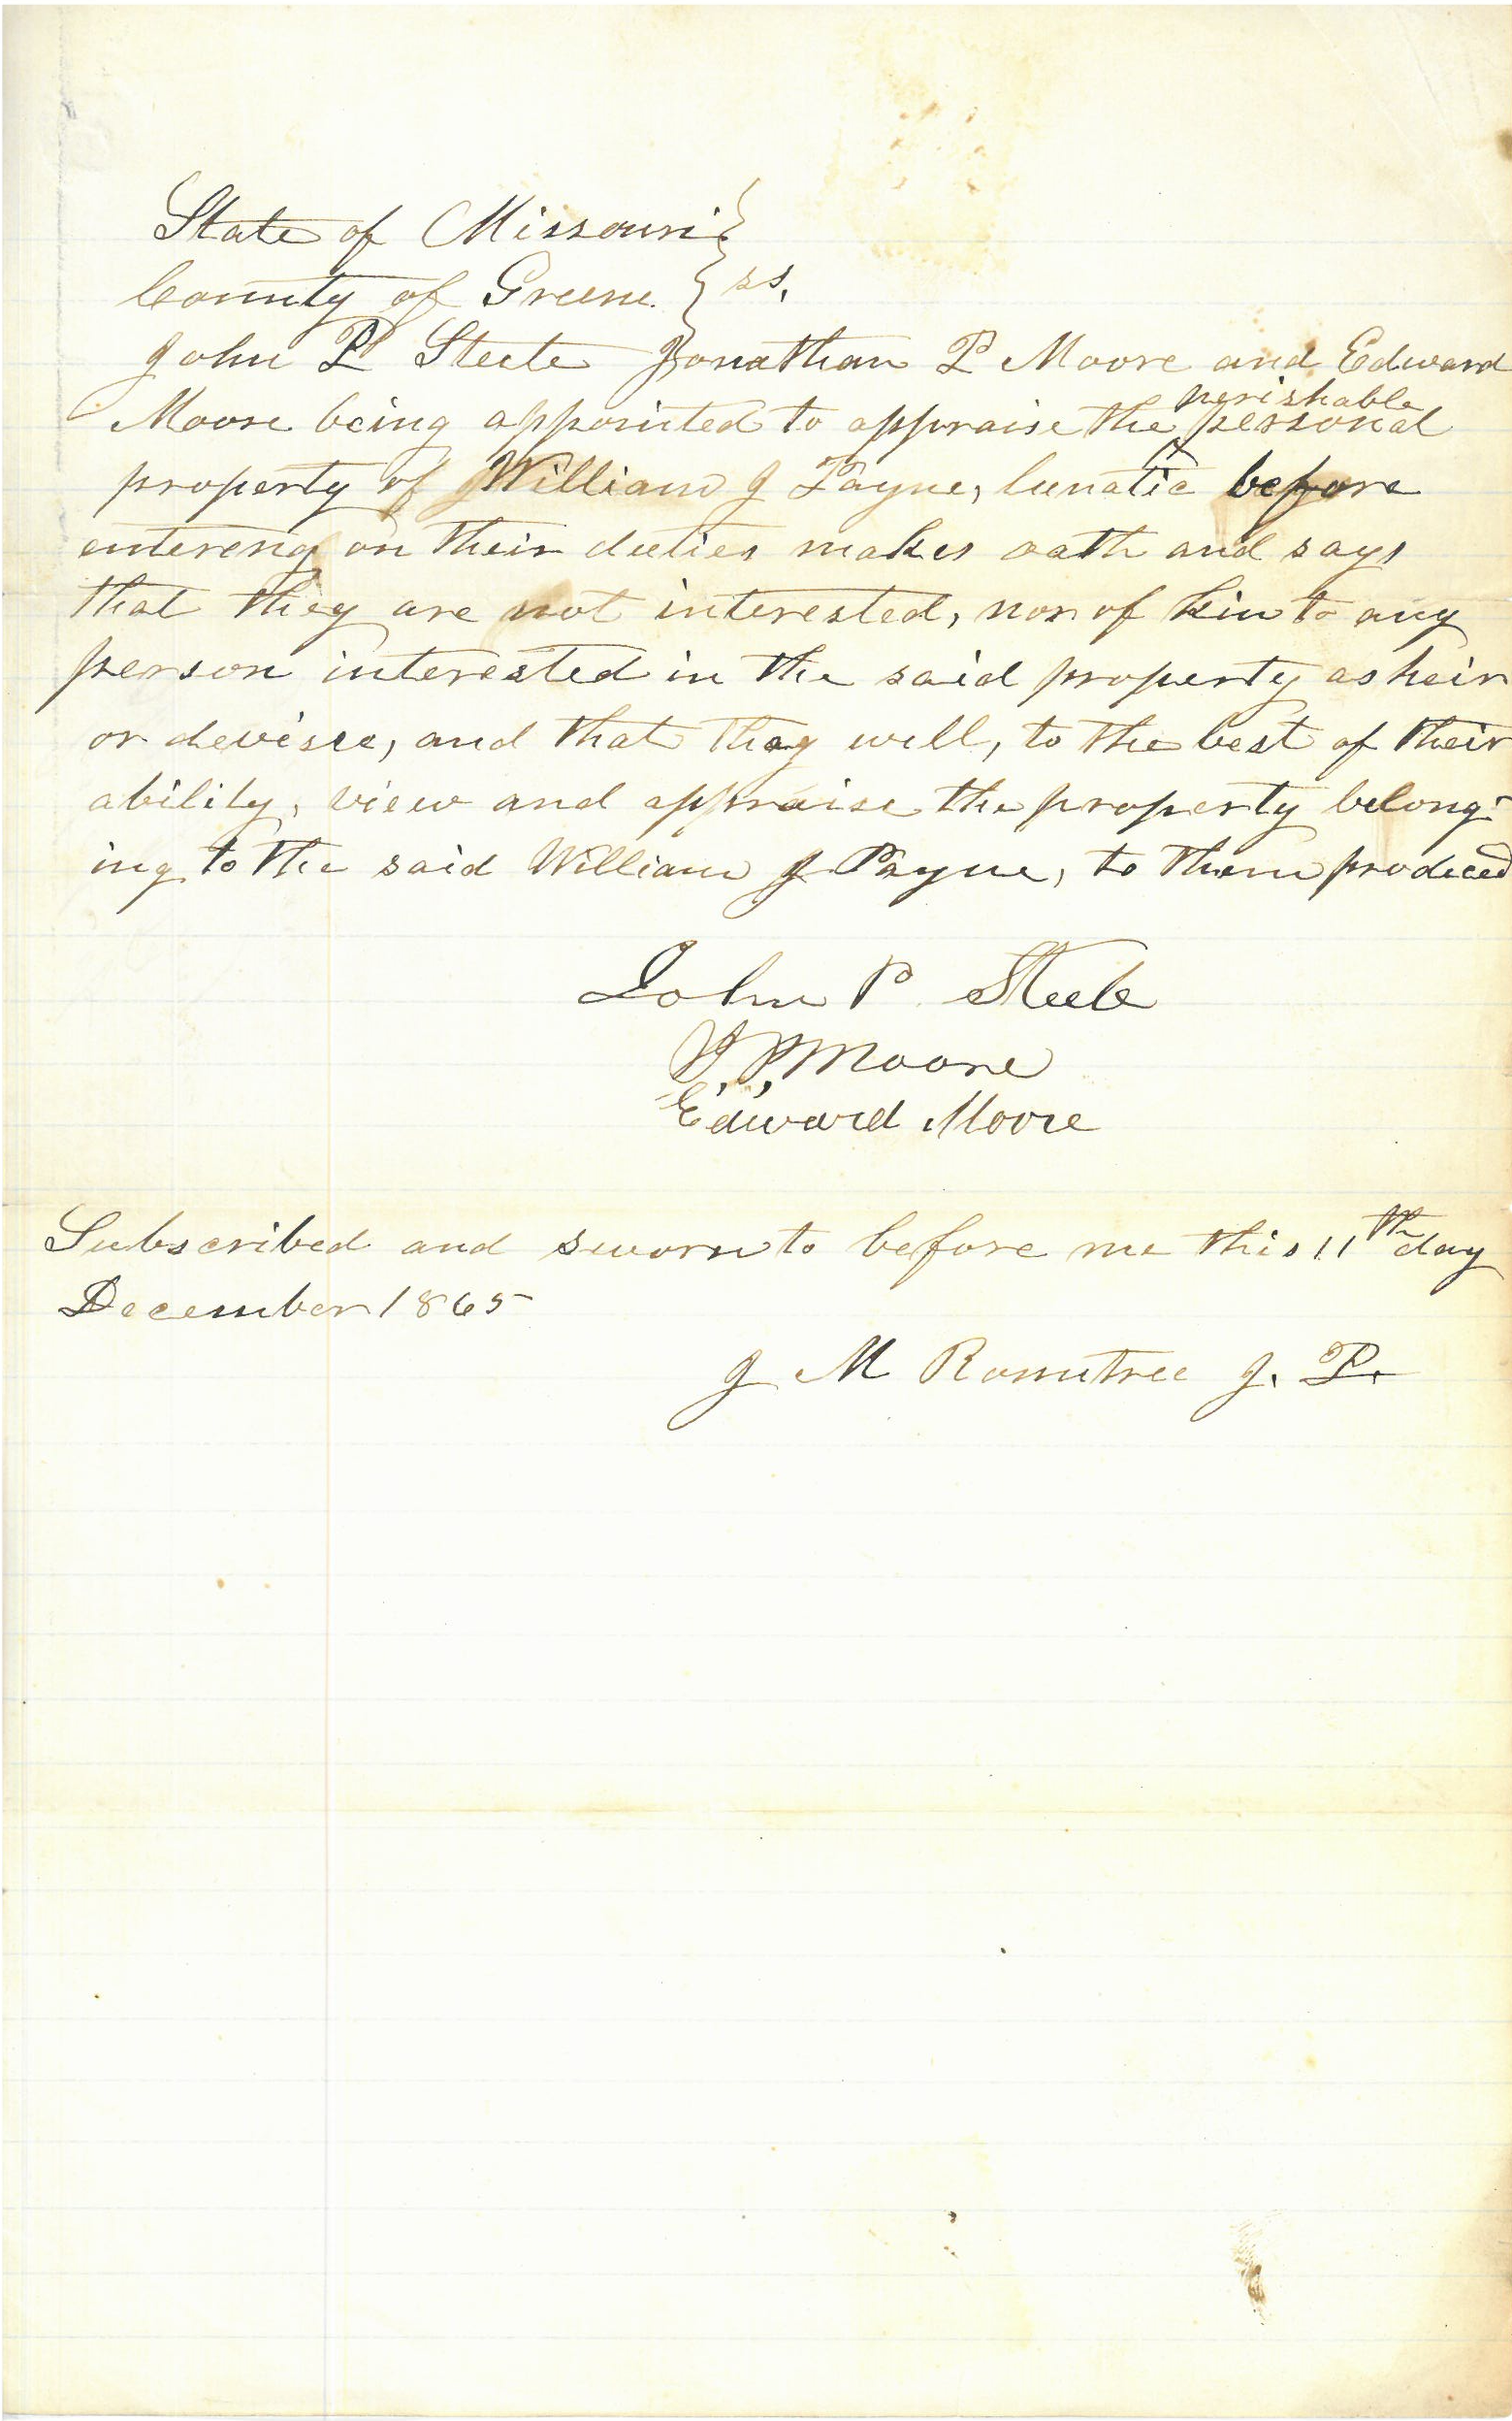 State of Missouri }
County of Greene } ss.
John P Steele Jonathan P Moore and Edward
perishable
Moore being appointed to appraise the ^ personal
property of William J Payne, lunatic before
entereng on their duties makes oath and says
that they are not interested, nor of kin to any
person interested in the said property as heir
or devisee, and that they will, to the best of their
ability, view and appraise the property belong-
ing to the said William J Payne, to them produced
John P. Steele
J. P. Moore
Edward Moore
Subscribed and sworn to before me this 11th day
December 1865
J M Rountree J. P.